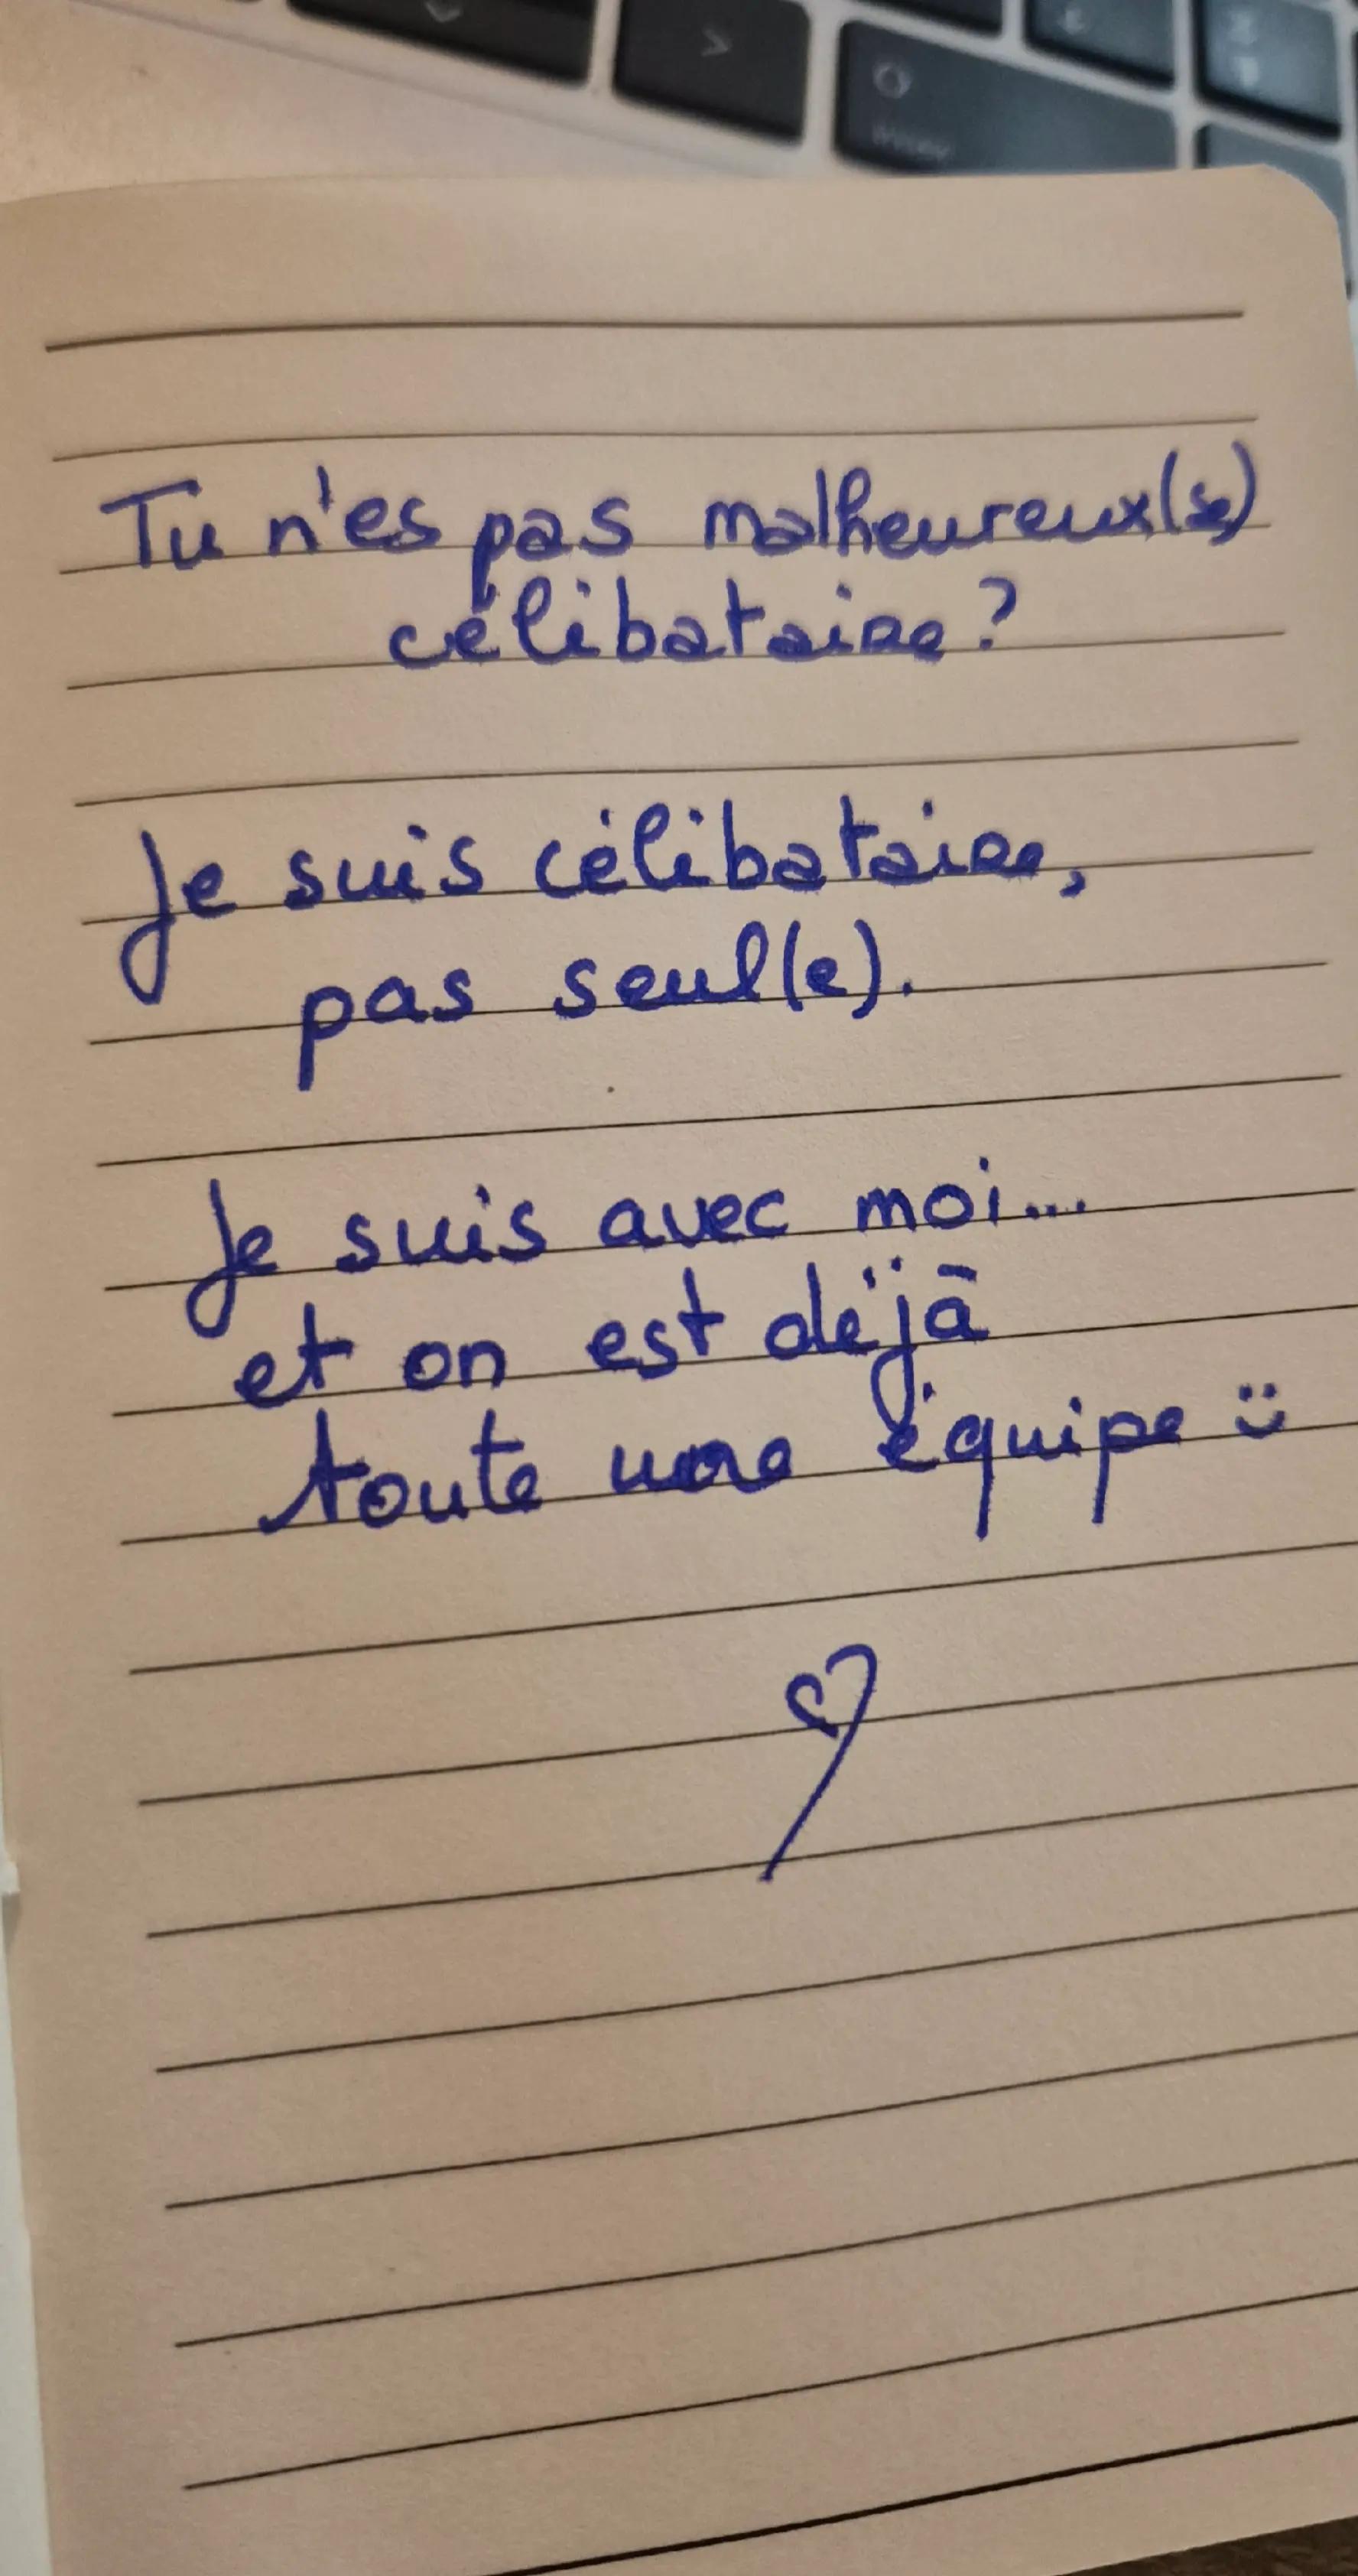 Tu n'es pas malheureux(se)
célibataire?
Je suis célibataire,
pas seul(e).
Je suis avec moi...
et on est déjà
toute une équipe ü